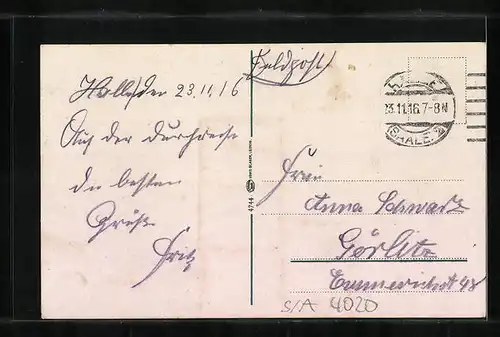 Feldpost
Halle, den 23.11.16
Auf der Durchreise
die besten
Grüße
Fritz
23.11.16.7-8N
(SAALE) 2
4744
Frau
Anna Schwarz
Görlitz
Emmerichstr 48
S/A 4020